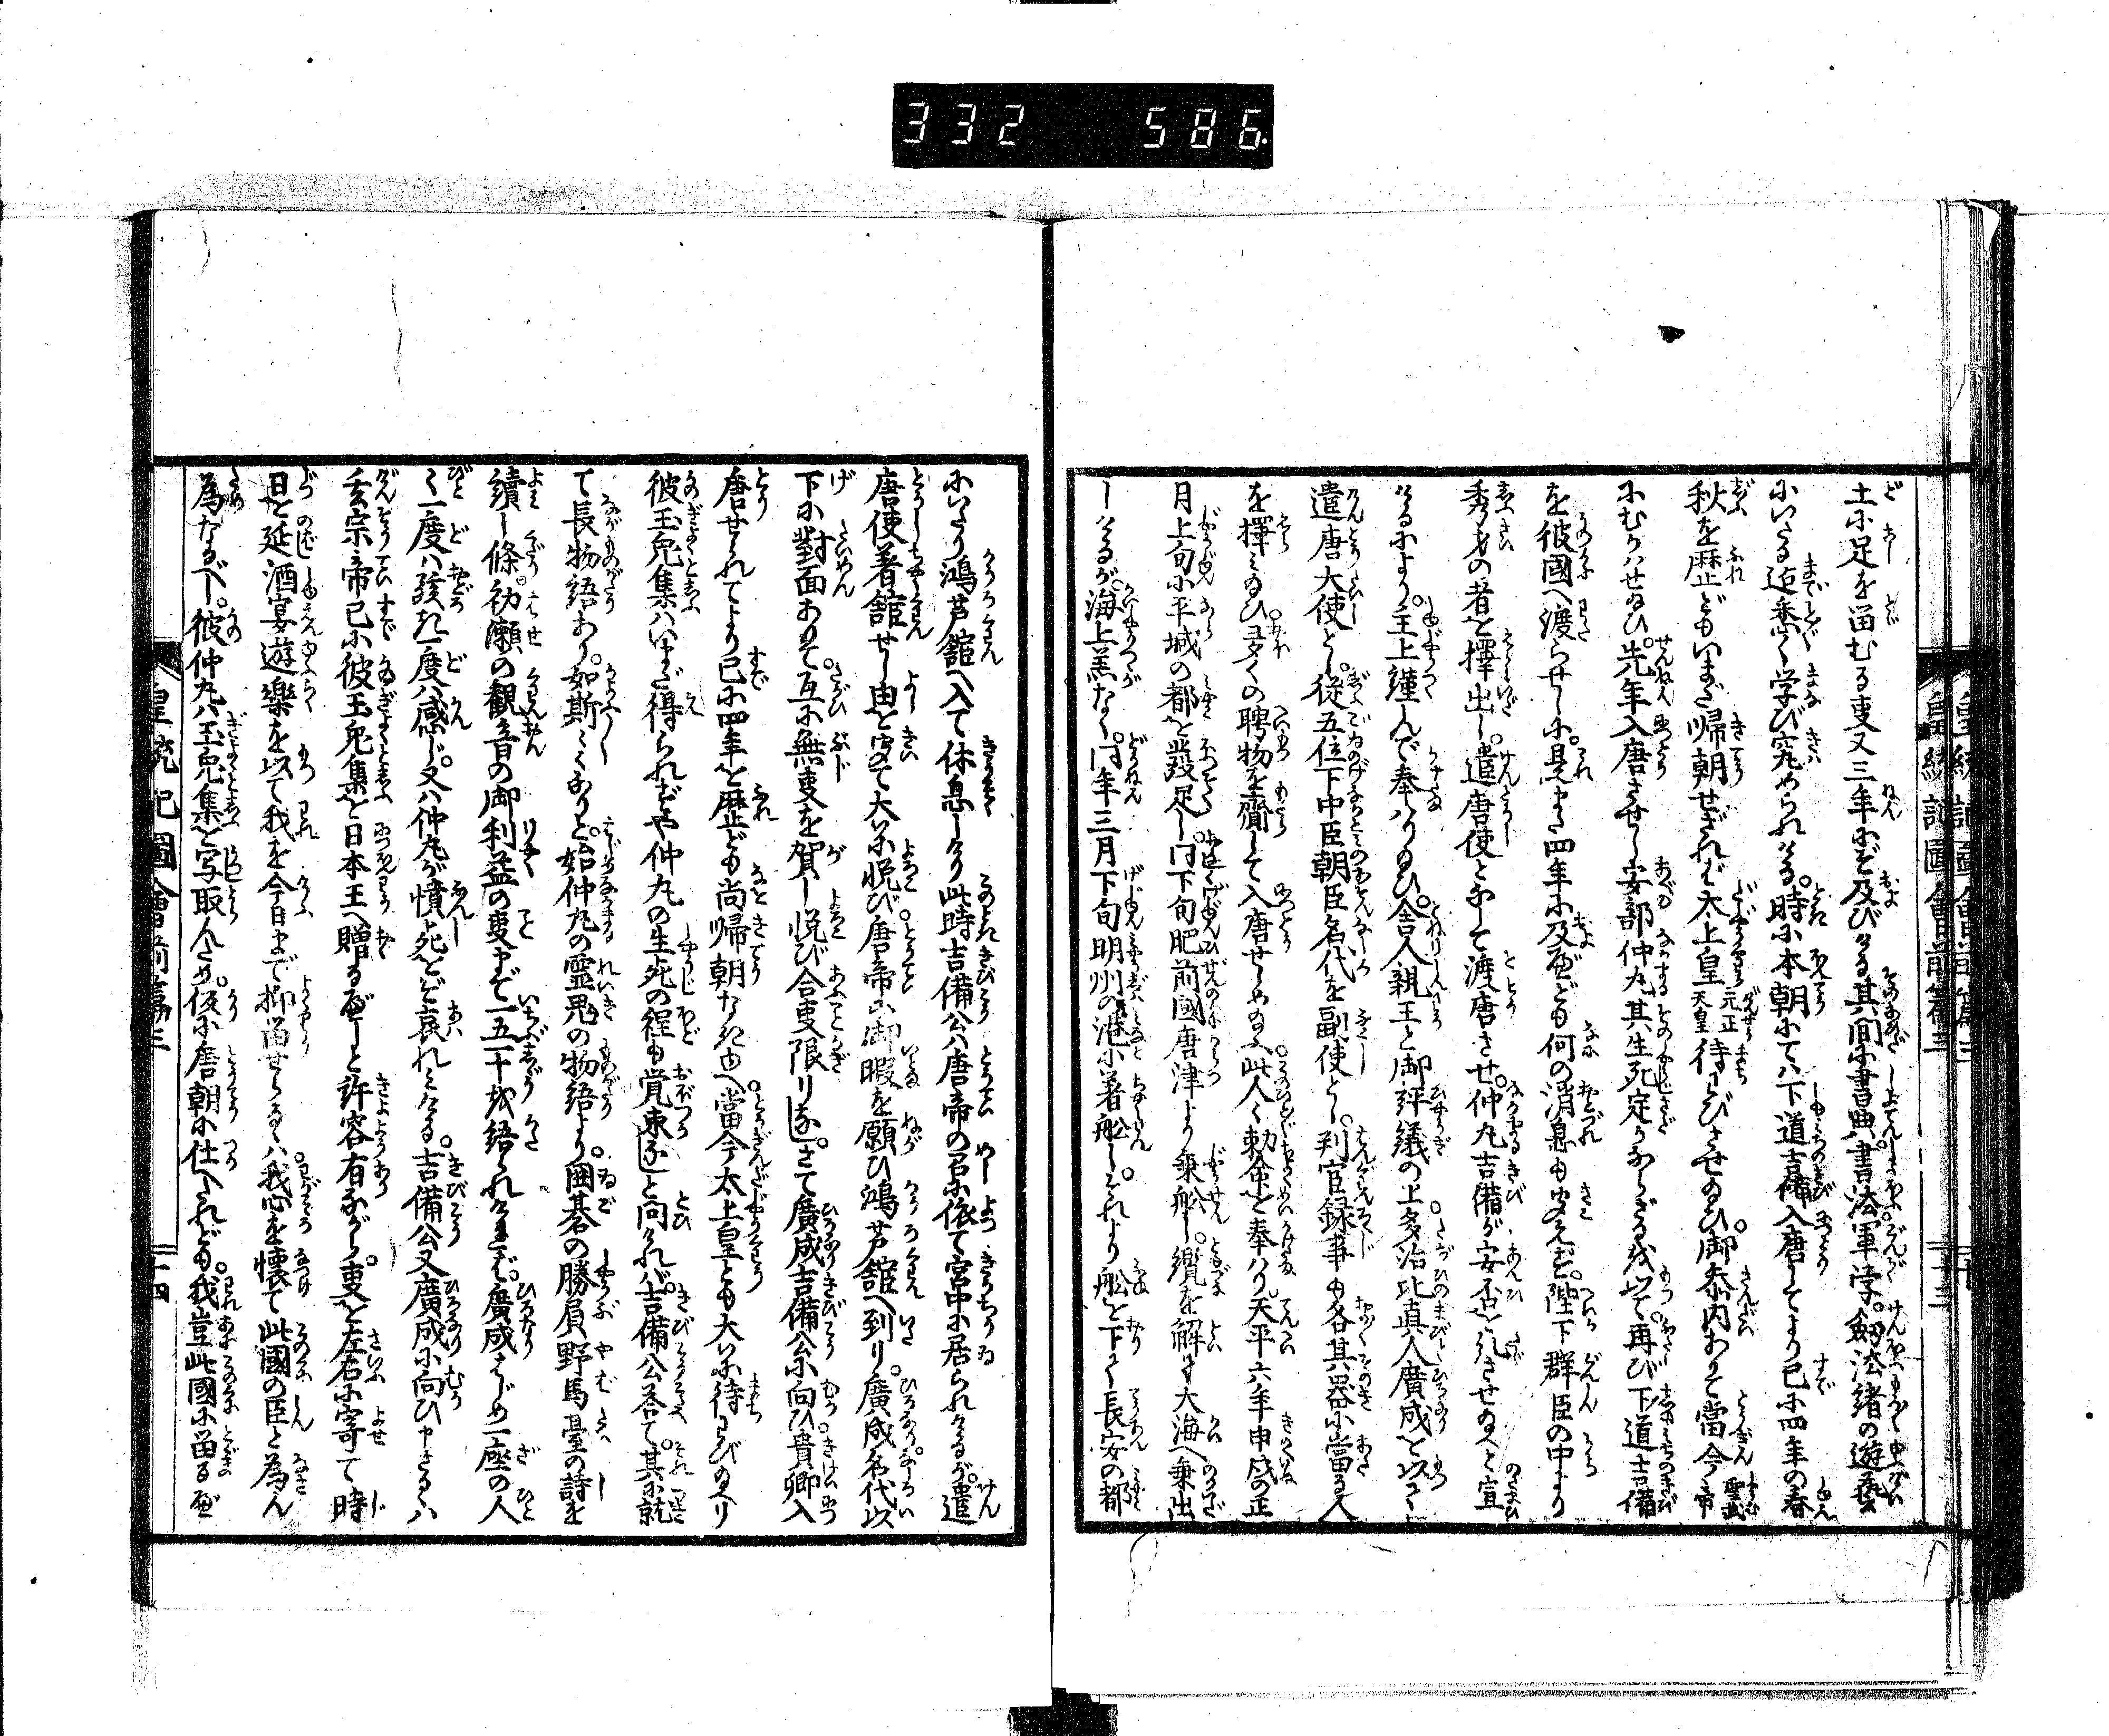 332 586
土に足を留むる事又三年にぞ及びける其間に書典。書法軍学。剱法緒の遊藝
にいたる迄悉く学び究められける。時に本朝にては下道吉備入唐してより已に四年の春
秋を歴どもいまだ帰朝せざれば太上皇元正天皇待わびさせ給ひ。御参内ありて當今帝聖武
にむかはせ給ひ。先年入唐させし安部仲丸其生死定かならざるを以て。再び下道吉備
を彼國へ渡らせしに。是また四年に及べども何の消息も聞えず。陛下群臣の中より
秀才の者を擇出し。遣唐使となして渡唐させ。仲丸吉備が安否を引させ給へと宣
けるにより。主上謹んで奉はり給ひ。舎人親王と御評議の上多治比真人廣成を以て
遣唐大使とし。従五位下中臣朝臣名代を副使とし。判官録事も各其器に當る人
を擇み給ひ。多くの聘物を齎して入唐せしめ給ふ。此人々勅命を奉はり。天平六年申戌の正
月上旬に平城の都を發足し。同下旬肥前國唐津より乗船し。纜を解て大海へ乗出
しけるが。海上恙なく。同年三月下旬明州の港に着船し。それより船を下りて長安の都
にいたり鴻芦舘へ入て休息しけり此時吉備公は唐帝の召に依て宮中に居られけるが。遣
唐使着舘せし由を聞て大いに悦び。唐帝に御暇を願ひ鴻芦舘へ到り。廣成名代以
下に對面ありて。互に無事を賀し悦び合事限りなし。さて廣成吉備公に向ひ貴卿入
唐せられてより已に四年を歴ども尚帰朝なきゆへ。當今太上皇とも大いに待わび給へり
彼玉兎集はいまだ得られずや仲丸の生死の程も覚束なしと問ければ。吉備公答て。其に就
て長物語あり。如斯々々なりと。始仲丸の霊鬼の物語より。囲碁の勝負野馬臺の詩を
續し條。初瀬の観音の御利益の事まで一五一十語られければ。廣成はじめ一座の人
々一度は驚き一度は感じ。又は仲丸が憤死をぞ哀れみける。吉備公又廣成に向ひ申さるゝは
玄宗帝已に彼玉兎集を日本王へ贈るべしと許容有ながら。事を左右に寄て時
日を延酒宴遊楽を以て我を今日まで抑留せらるゝは。我心を懐て此國の臣と為ん
為なるべし。彼仲丸は玉兎集を写取んため。仮に唐朝に仕へしかれども。我豈此國に留るべ
皇統記圖會前篇三
二十四
皇統記圖會前篇三